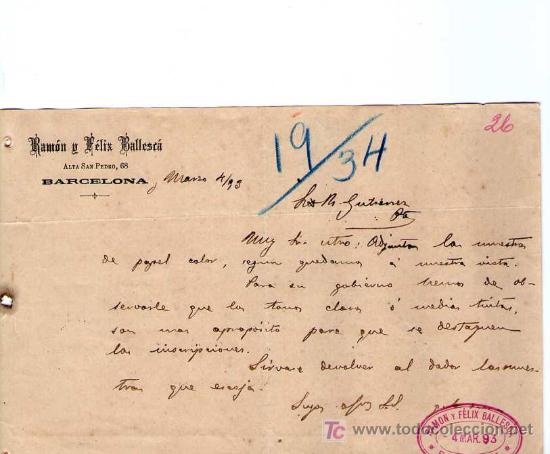 Ramón y Félix Ballescá
Alta San Pedro, 68
BARCELONA, Marzo 4/93
19/34
26
Sr. Dn. R. Gutierrez
Pte
Muy Sr. ntro: Adjunta las muestra
de papel color, segun quedamos á nuestra vista.
Para su gobierno hemos de ob-
servarle que los tonos claros ó medias tintas,
son mas apropósito para que se destaquen
las inscripciones.
Sirvase devolver al dador las mues-
tras que escoja.
Suyos afmos S.S.
RAMON Y FÉLIX BALLESCÁ
4 MAR. 93
TC todocoleccion.net